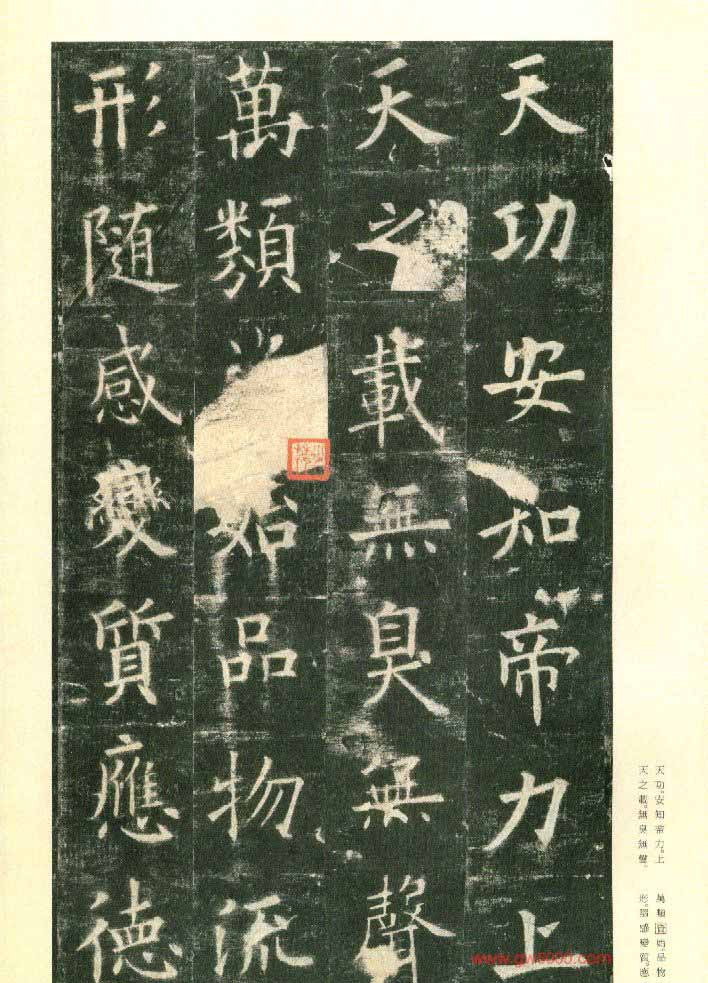 天功安知帝力上
天之載無臭無聲
萬類始品物流
形隨感變質應德
天功。安知帝力。上
天之載。無臭無聲。
萬類資始。品物
形。隨感變質。應